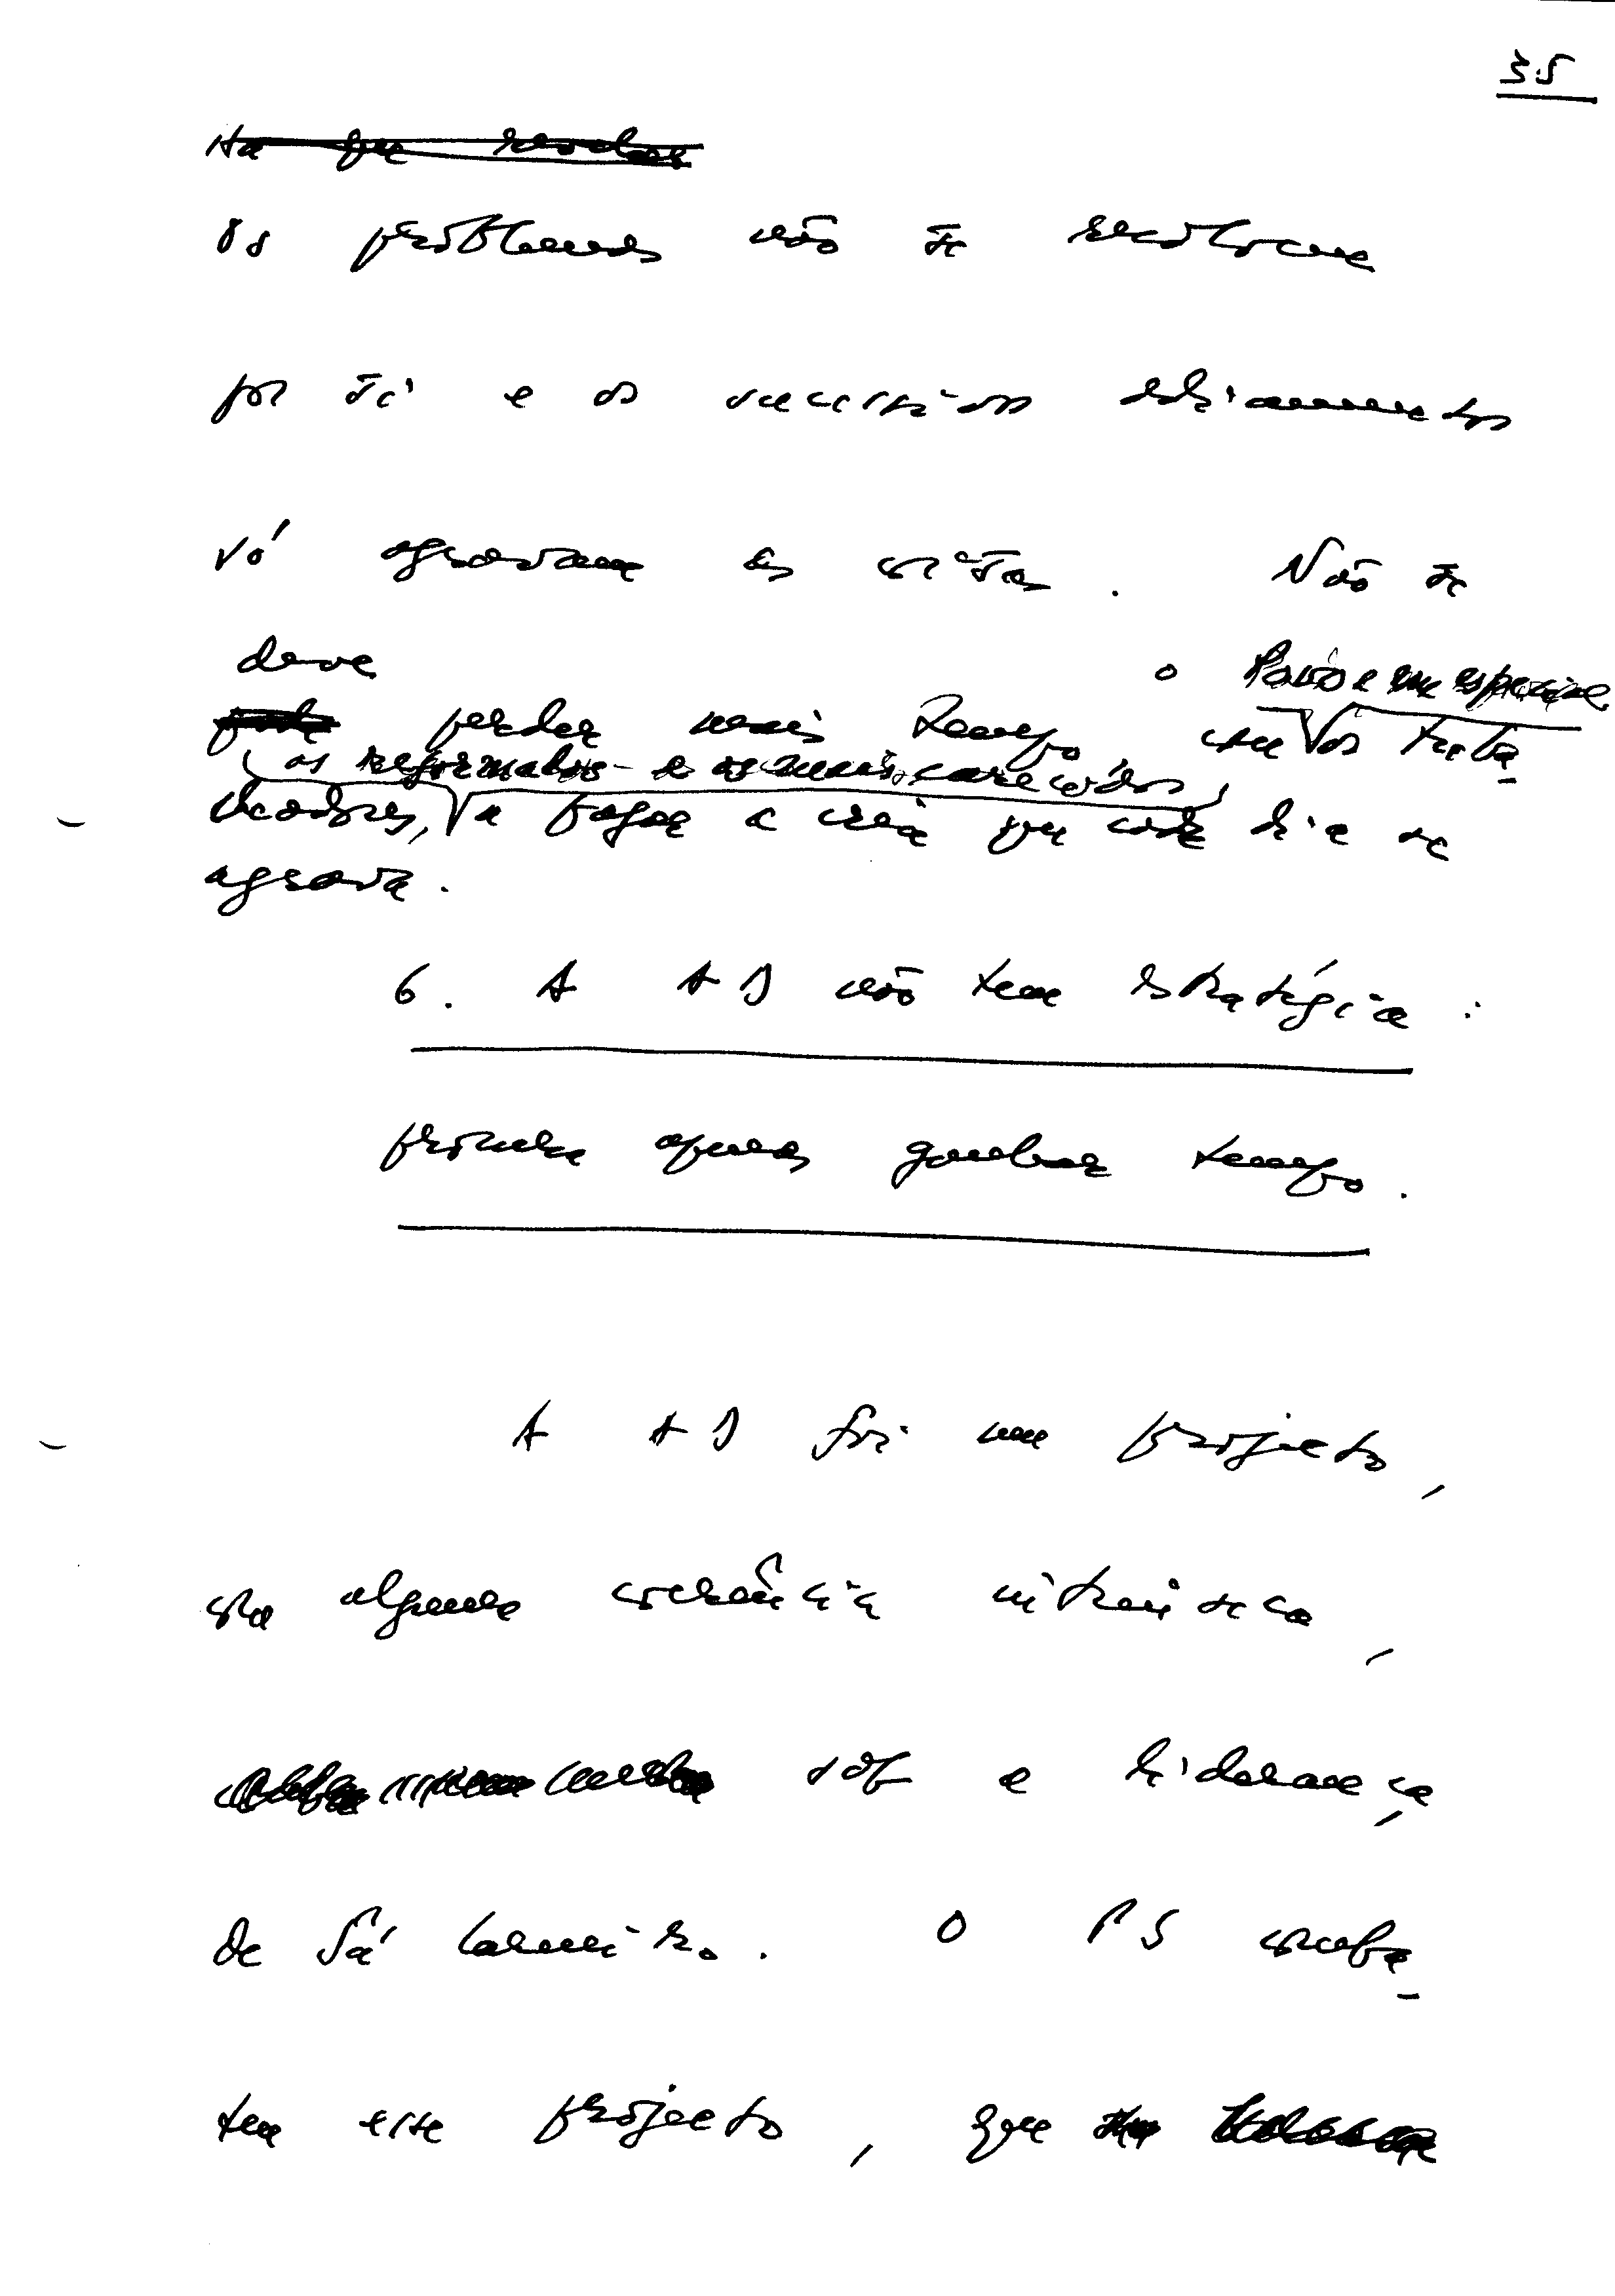 35
Há que resolver
Os problemas não se resolvem
por si e os sucessivos adiamentos
só agravam as coisas. Não se
deve o Povo e em especial
perder mais tempo, com os traba-
os reformados e os mais carecidos
lhadores, a pagar a crise que cada dia se
agrava.
6. A AD não tem estratégia:
procura apenas ganhar tempo.
A AD foi um projecto,
com alguma coerência intrínseca,
sob a liderança,
de Sá Carneiro. O PS comba-
teu esse projecto, que